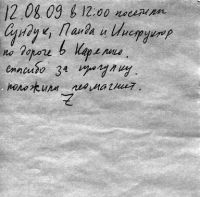 12.08.09 в 12:00 посетили
Сундук, Панда и Инструктор
по дороге в Карелию.
спасибо за прогулку.
положили магнит.